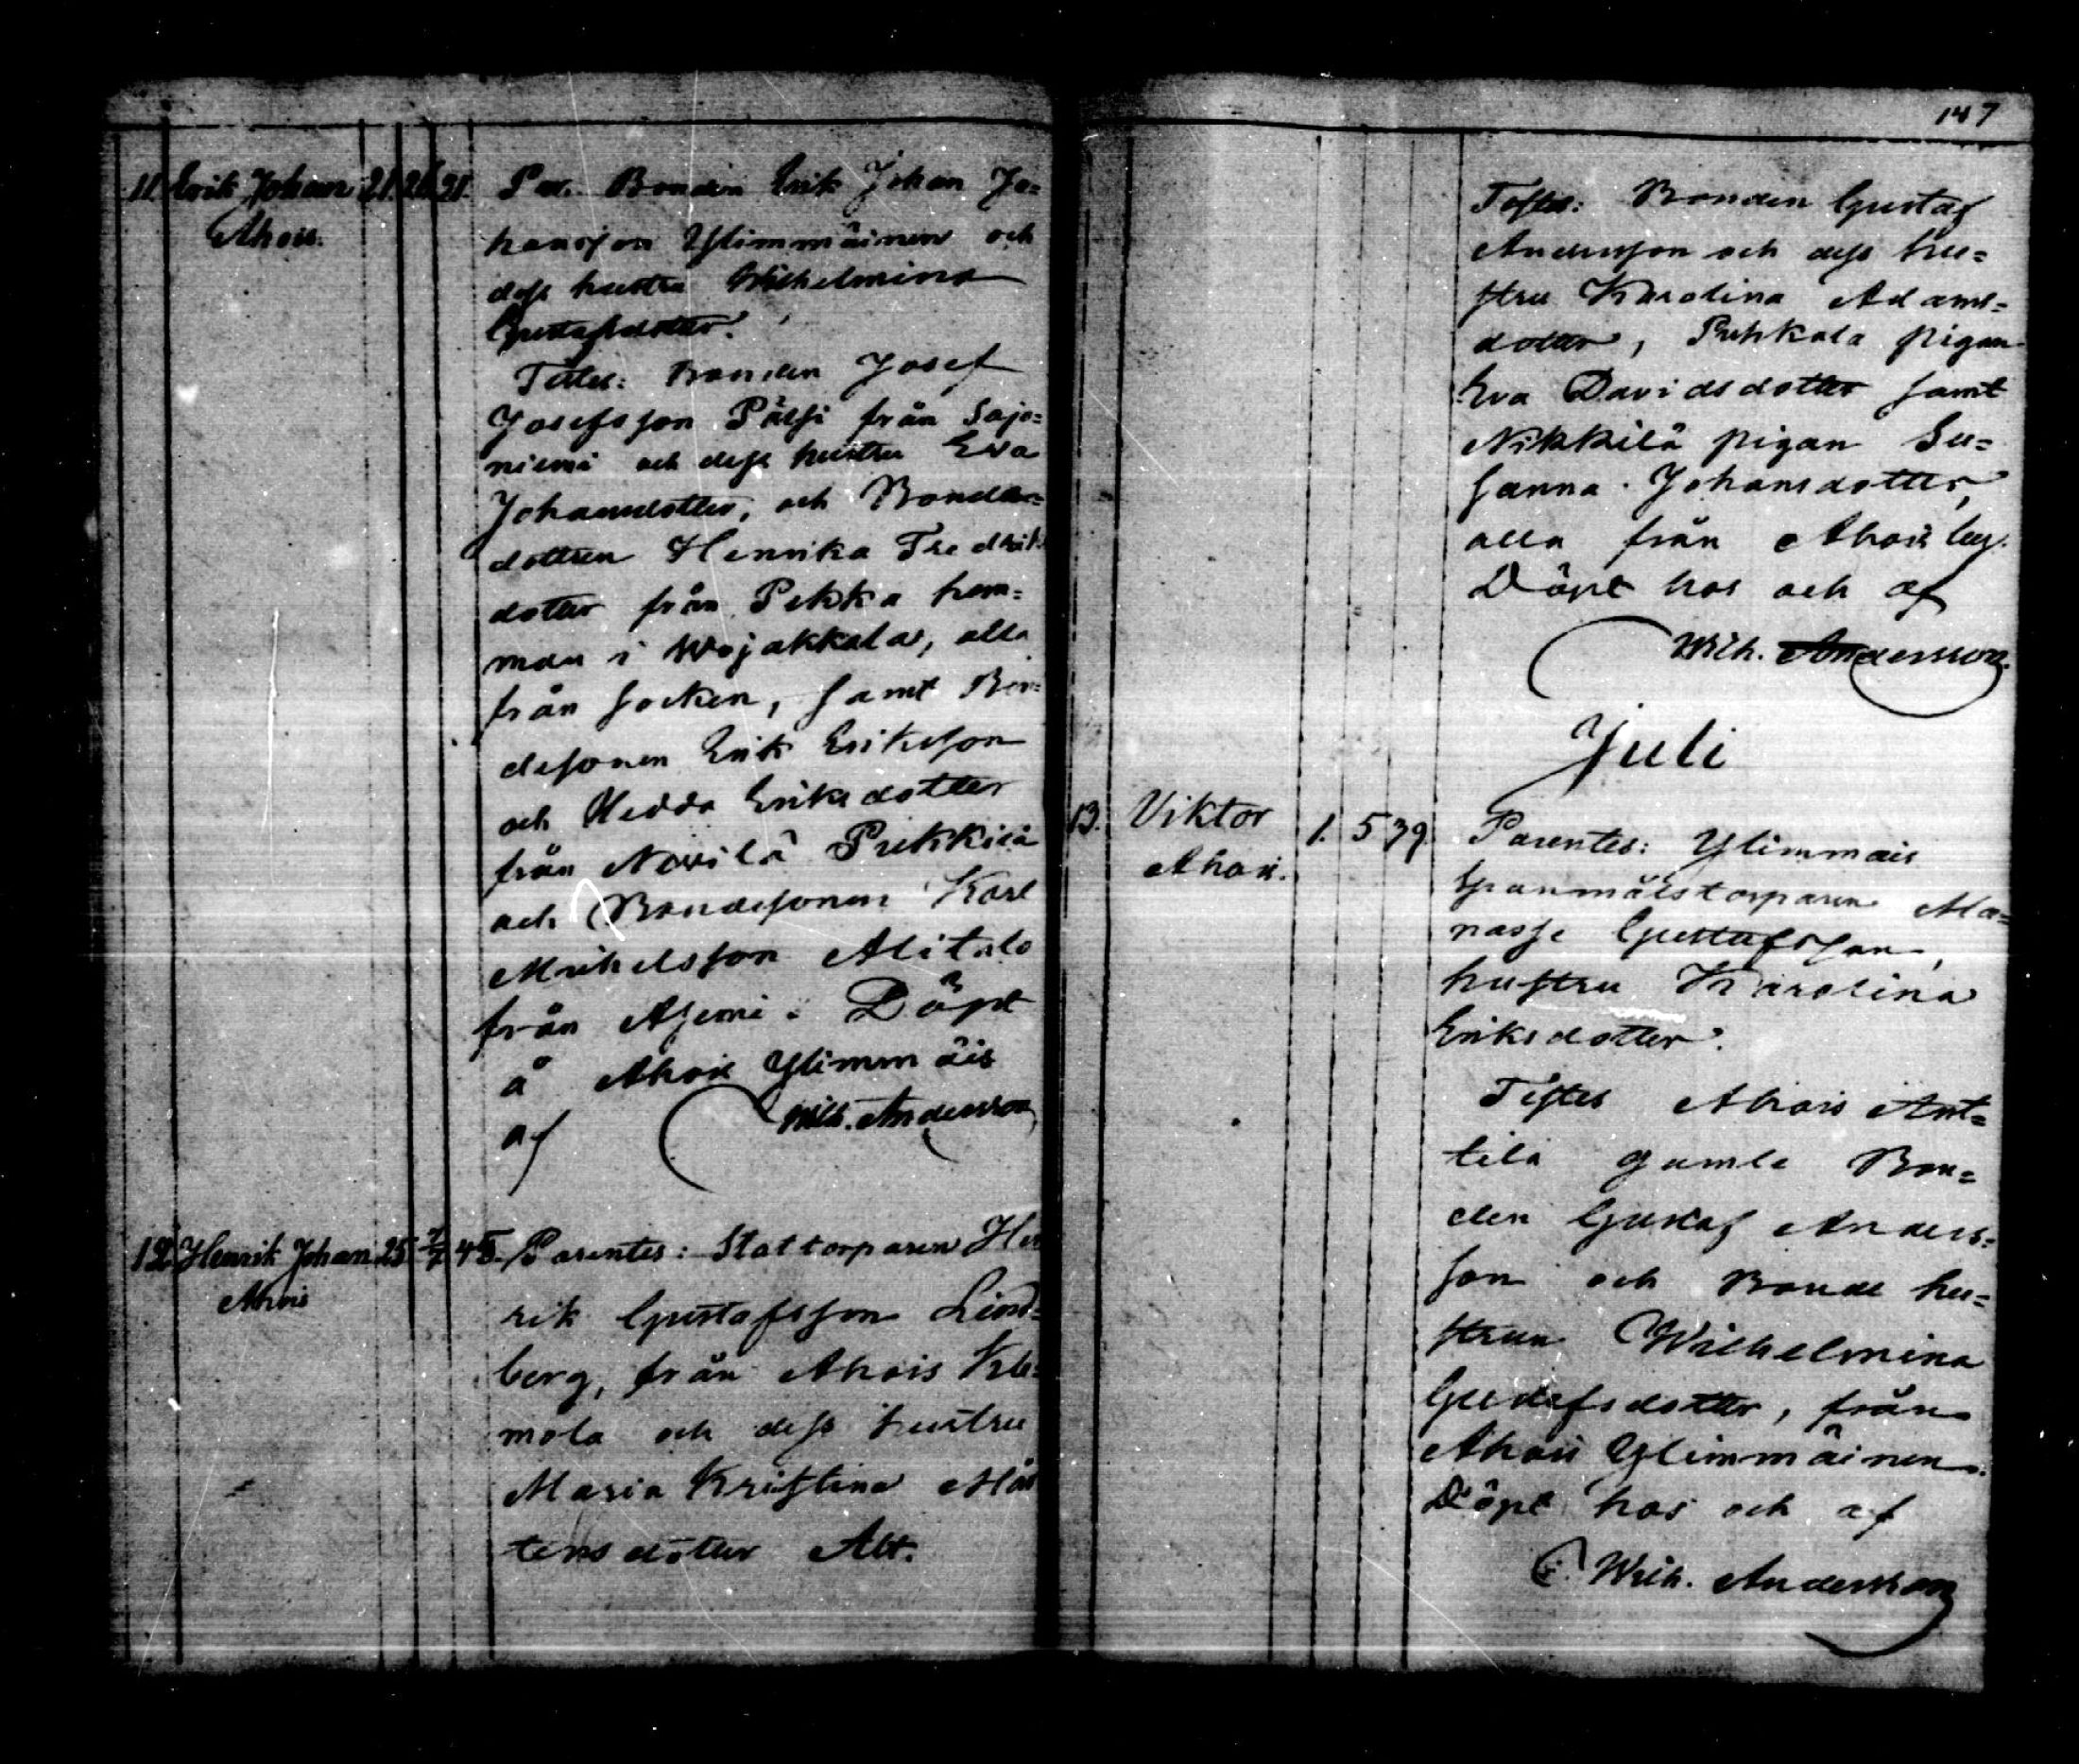 11. Erik Johan 21. 26. 21. Par. Bonden Erik Johan Jo=
Ahois. hansson Ylimmäinen och
dess hustru Wilhelmina
Gustafsdotter.
Testes: Bonden Josef
Josefsson Pälsi från Sajo=
niemi och dess hustru Eva
Johansdotter, och Bonde=
dottren Henrika Fredrik
dotter från Pekka hem=
man i Wojakkala, alla
från socken, samt Bon=
desonen Erik Eriksson
och Hedda Eriksdotter
från
och Bondesonen Karl
Mikelsson Alitalo
från Döpt
å Ahois Ylimmäis
af Wilh. Andersson
12. Henrik Johan 25 2/7 45. Parentes: Stattorparen Hen
Ahois rik Gustafsson Lind=
berg, från Ahois Kle=
mola och dess hustru
Maria Kristina Mår
tensdotter Abt.
147
Testes: Bonden Gustaf
Andersson och dess hu=
stru Karolina Adams=
dotter, pigan
Eva Davidsdotter samt
Nikkilä pigan Su=
sanna Johansdotter,
alla från Ahois by.
Döpt hos och af
Wilh. Andersson.
Juli
13. Viktor 1. 5 39. Parentes: Ylimmäis
Ahois. Spanmålstorparen Ma=
nasse Gustafsson,
hustru Karolina
Eriksdotter.
Testes Ahois Ant=
tila gamle Bon=
den Gustaf Anders=
son och Bonde hu=
strun Wilhelmina
Gustafsdotter, från
Ahois Ylimmäinen.
Döpt hos och af
Wilh. Andersson